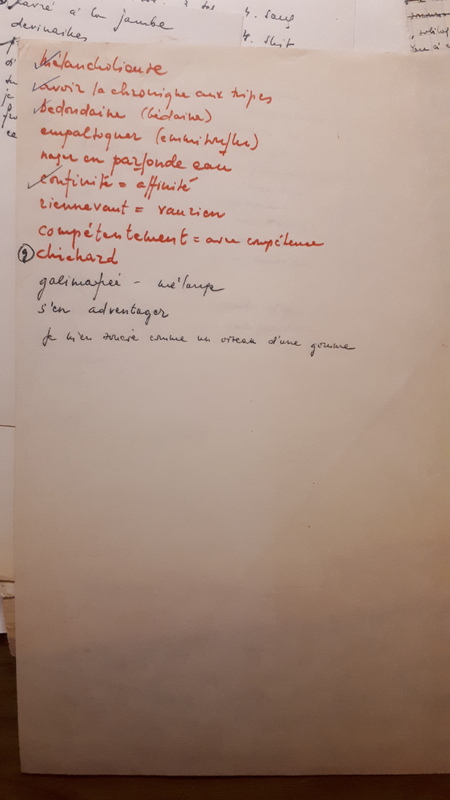 à la jambe
devinailles
mélancolieuse
avoir la chronique aux tripes
bedondaine (bédaine)
empaltoquer (emmitoufler)
nager en parfonde eau
confinité = affinité
riennevant = vaurien
compétentement = avec compétence
chichard
galimafrée - mélange
s'en adventager
Je m'en soucie comme un oiseau d'une gomme